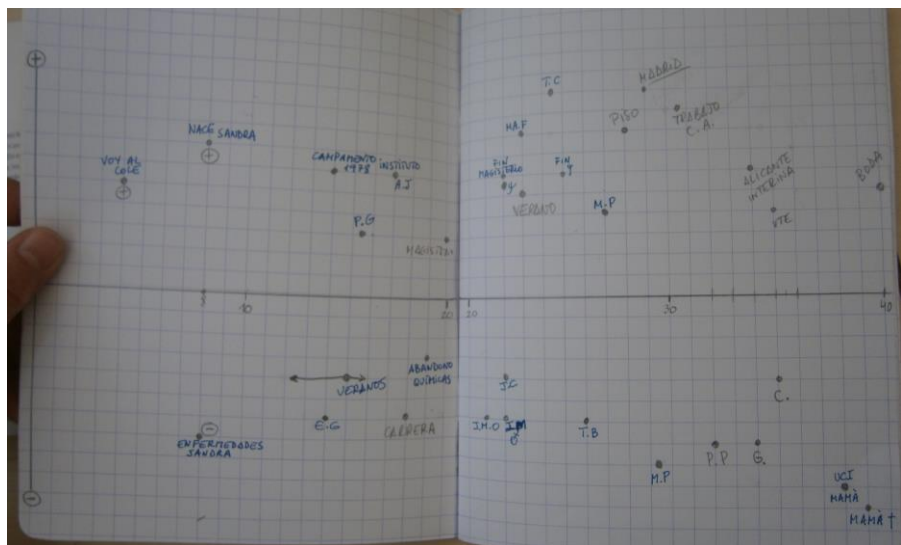 +
NACE SANDRA
+
VOY AL
COLE
+
CAMPAMENTO
1978
INSTITUTO
A.J
P.G
MAGISTERIO
T.C
MADRID
HA.F
PISO
TRABAJO
C.A.
FIN
MAGISTERIO
y
FIN
VERANO
M.P
ALICANTE
INTERINA
VTE
BODA
8
10
20
20
30
40
VERANOS
ABANDONO
QUÍMICAS
E.G
CARRERA
-
ENFERMEDADES
SANDRA
-
J.C
J.M.O
T.B
C.
M.P
P.P
G.
UCI
MAMÀ
MAMÀ †